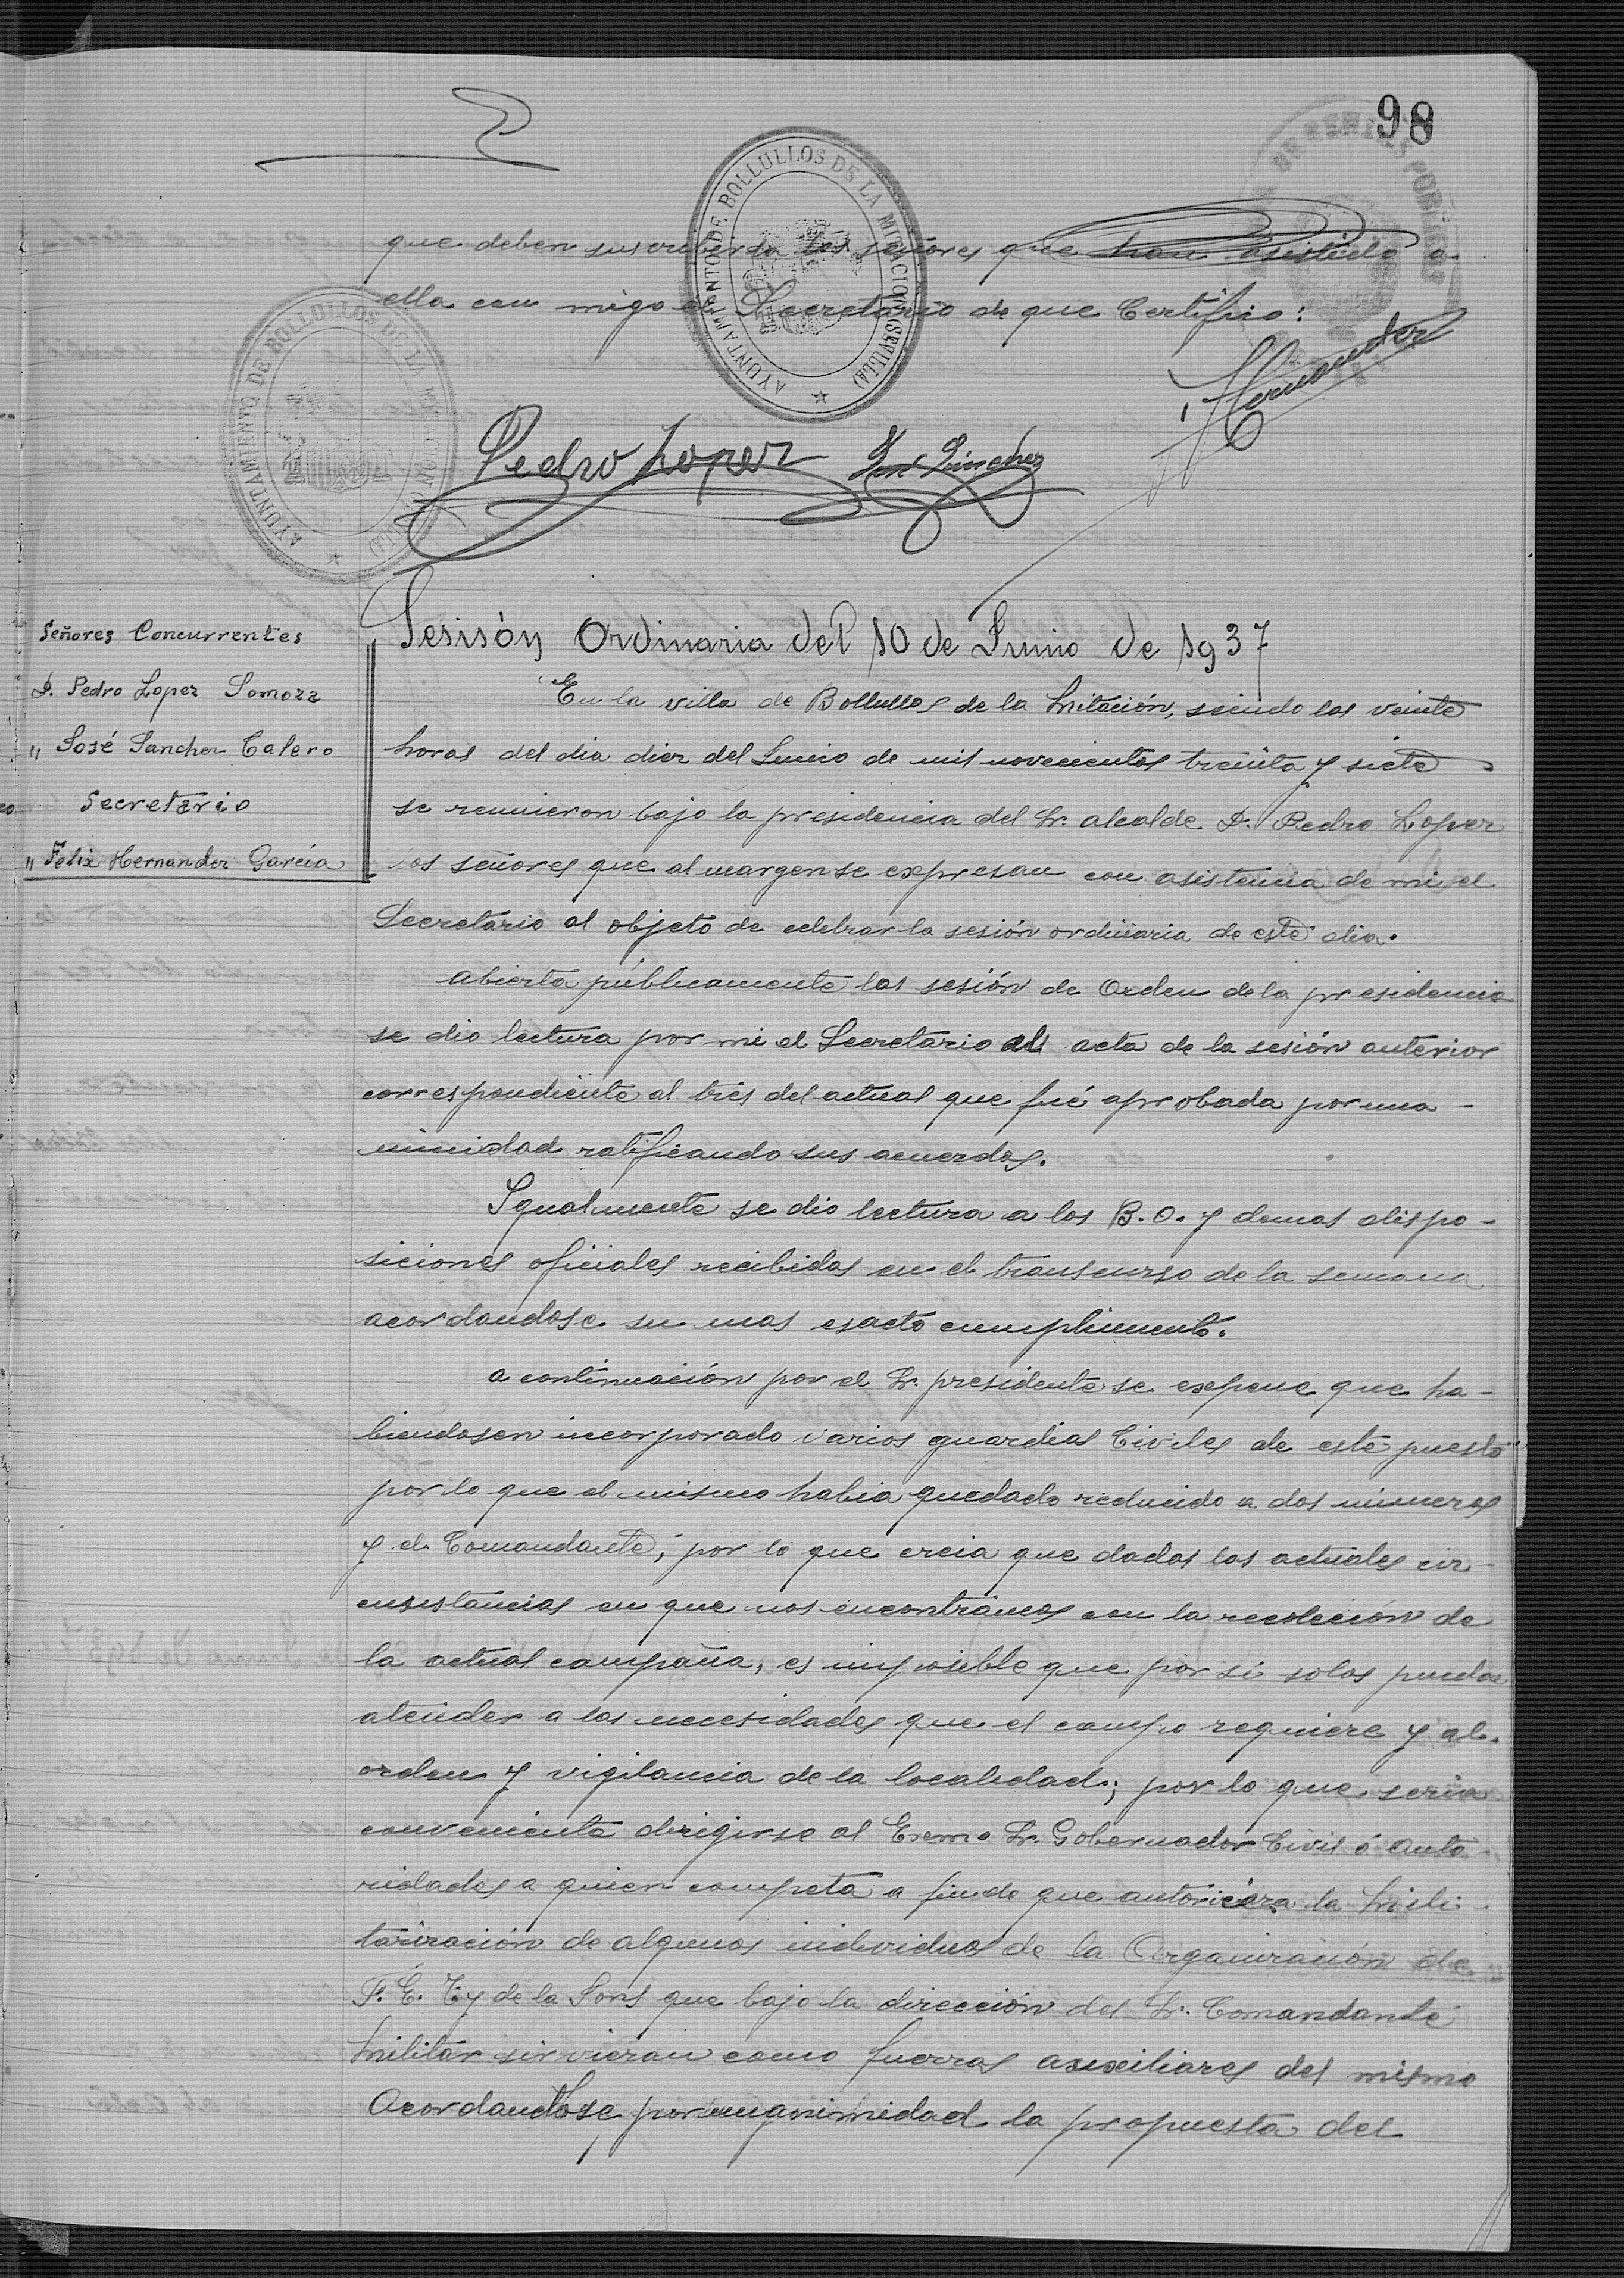 98
que deben suscribirla los señores que han asistido a
ella con migo el Secretario de que Certifico:
AYUNTAMIENTO DE BOLLULLOS DE LA MITACION (SEVILLA)
AYUNTAMIENTO DE BOLLULLOS DE LA MITACION (SEVILLA)
Hernandez
Pedro Lopez José Sánchez
Señores Concurrentes
D. Pedro Lopez Somoza
" José Sanchez Calero
Secretario
" Felix Hernandez García
Sesisón Ordinaria del 10 de Junio de 1937
En la villa de Bollullos de la Mitación, siendo las veinte
horas del dia diez del Junio de mil novecientos treinta y siete
se reunieron bajo la presidencia del Sr. alcalde D. Pedro Lopez
los señores que al margen se expresan con asistencia de mi el
Secretario al objeto de celebrar la sesión ordinaria de este dia.
abierta públicamente las sesión de Orden de la presidencia
se dio lectura por mi el Secretario al acta de la sesión anterior
correspondiente al tres del actual que fué aprobada por una-
nimidad ratificando sus acuerdos.
Igualmente se dio lectura a los B.O. y demas dispo-
siciones oficiales recibidas en el transcurso de la semana
acordandose su mas esacto cumplimento.
a continuación por el Sr. presidente se expene que ha-
biendosen incorporado varios guardias Civiles de este puesto
por lo que el mismo habia quedado reducido a dos numeros
y el Comandante, por lo que creia que dadas las actuales cir-
cunstancias en que nos encontramos con la recoleción de
la actual campaña, es imposible que por si solos puedan
atender a las necesidades que el campo requiere y al
orden y vigilancia de la localidad; por lo que seria
conveniente dirigirse al Excmo Sr. Gobernador Civil ó auto-
ridades a quien competa a fin de que autorizara la Mili-
tarización de algunos individuos de la Organización de
F. E. T y de la Jons que bajo la dirección del Sr. Comandante
Militar sirvieran como fuerzas auxiliares del mismo
Acordandose por unanimidad la propuesta del